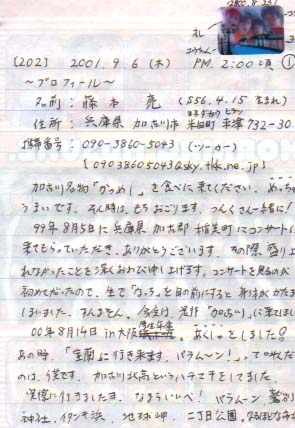 [202] 2001.9.6 (木) P.M. 2:00頃 ①
〜プロフィール〜
名前: 藤本 亮 (S56.4.15 生まれ)
住所: 兵庫県 加古川市 米田町 平津732-30
携帯番号: 090-3860-5043 (ツーカー)
[09038605043@sky.tkk.ne.jp]
加古川名物「かつめし」を食べに来てください。めっちゃ
うまいです。そん時は、もち おごります。つんくさん一緒に!
99年8月5日に兵庫県 加古郡 稲美町にコンサートに
来てもらっていただき、ありがとうございます。その際、盛り上
れなかったことを深くおわび申し上げます。コンサートを見るのが
初めてだったので、生で「な」を目の前にすると身体がかたま
しまいました。すんません。今度は、是非「加古川」に来てほしい
00年8月14日 in大阪厚生年金 あくしゅをしました。
あの時、「室蘭に行き来ます、バラムーン!」って叫んだ
のは、僕です。加古川北高というハラマキをしてました。
実際に行きましたヨ。なまらいいべ! バラムーン、
神社、イタンキ浜、地球岬、二丁目公園、なるほど